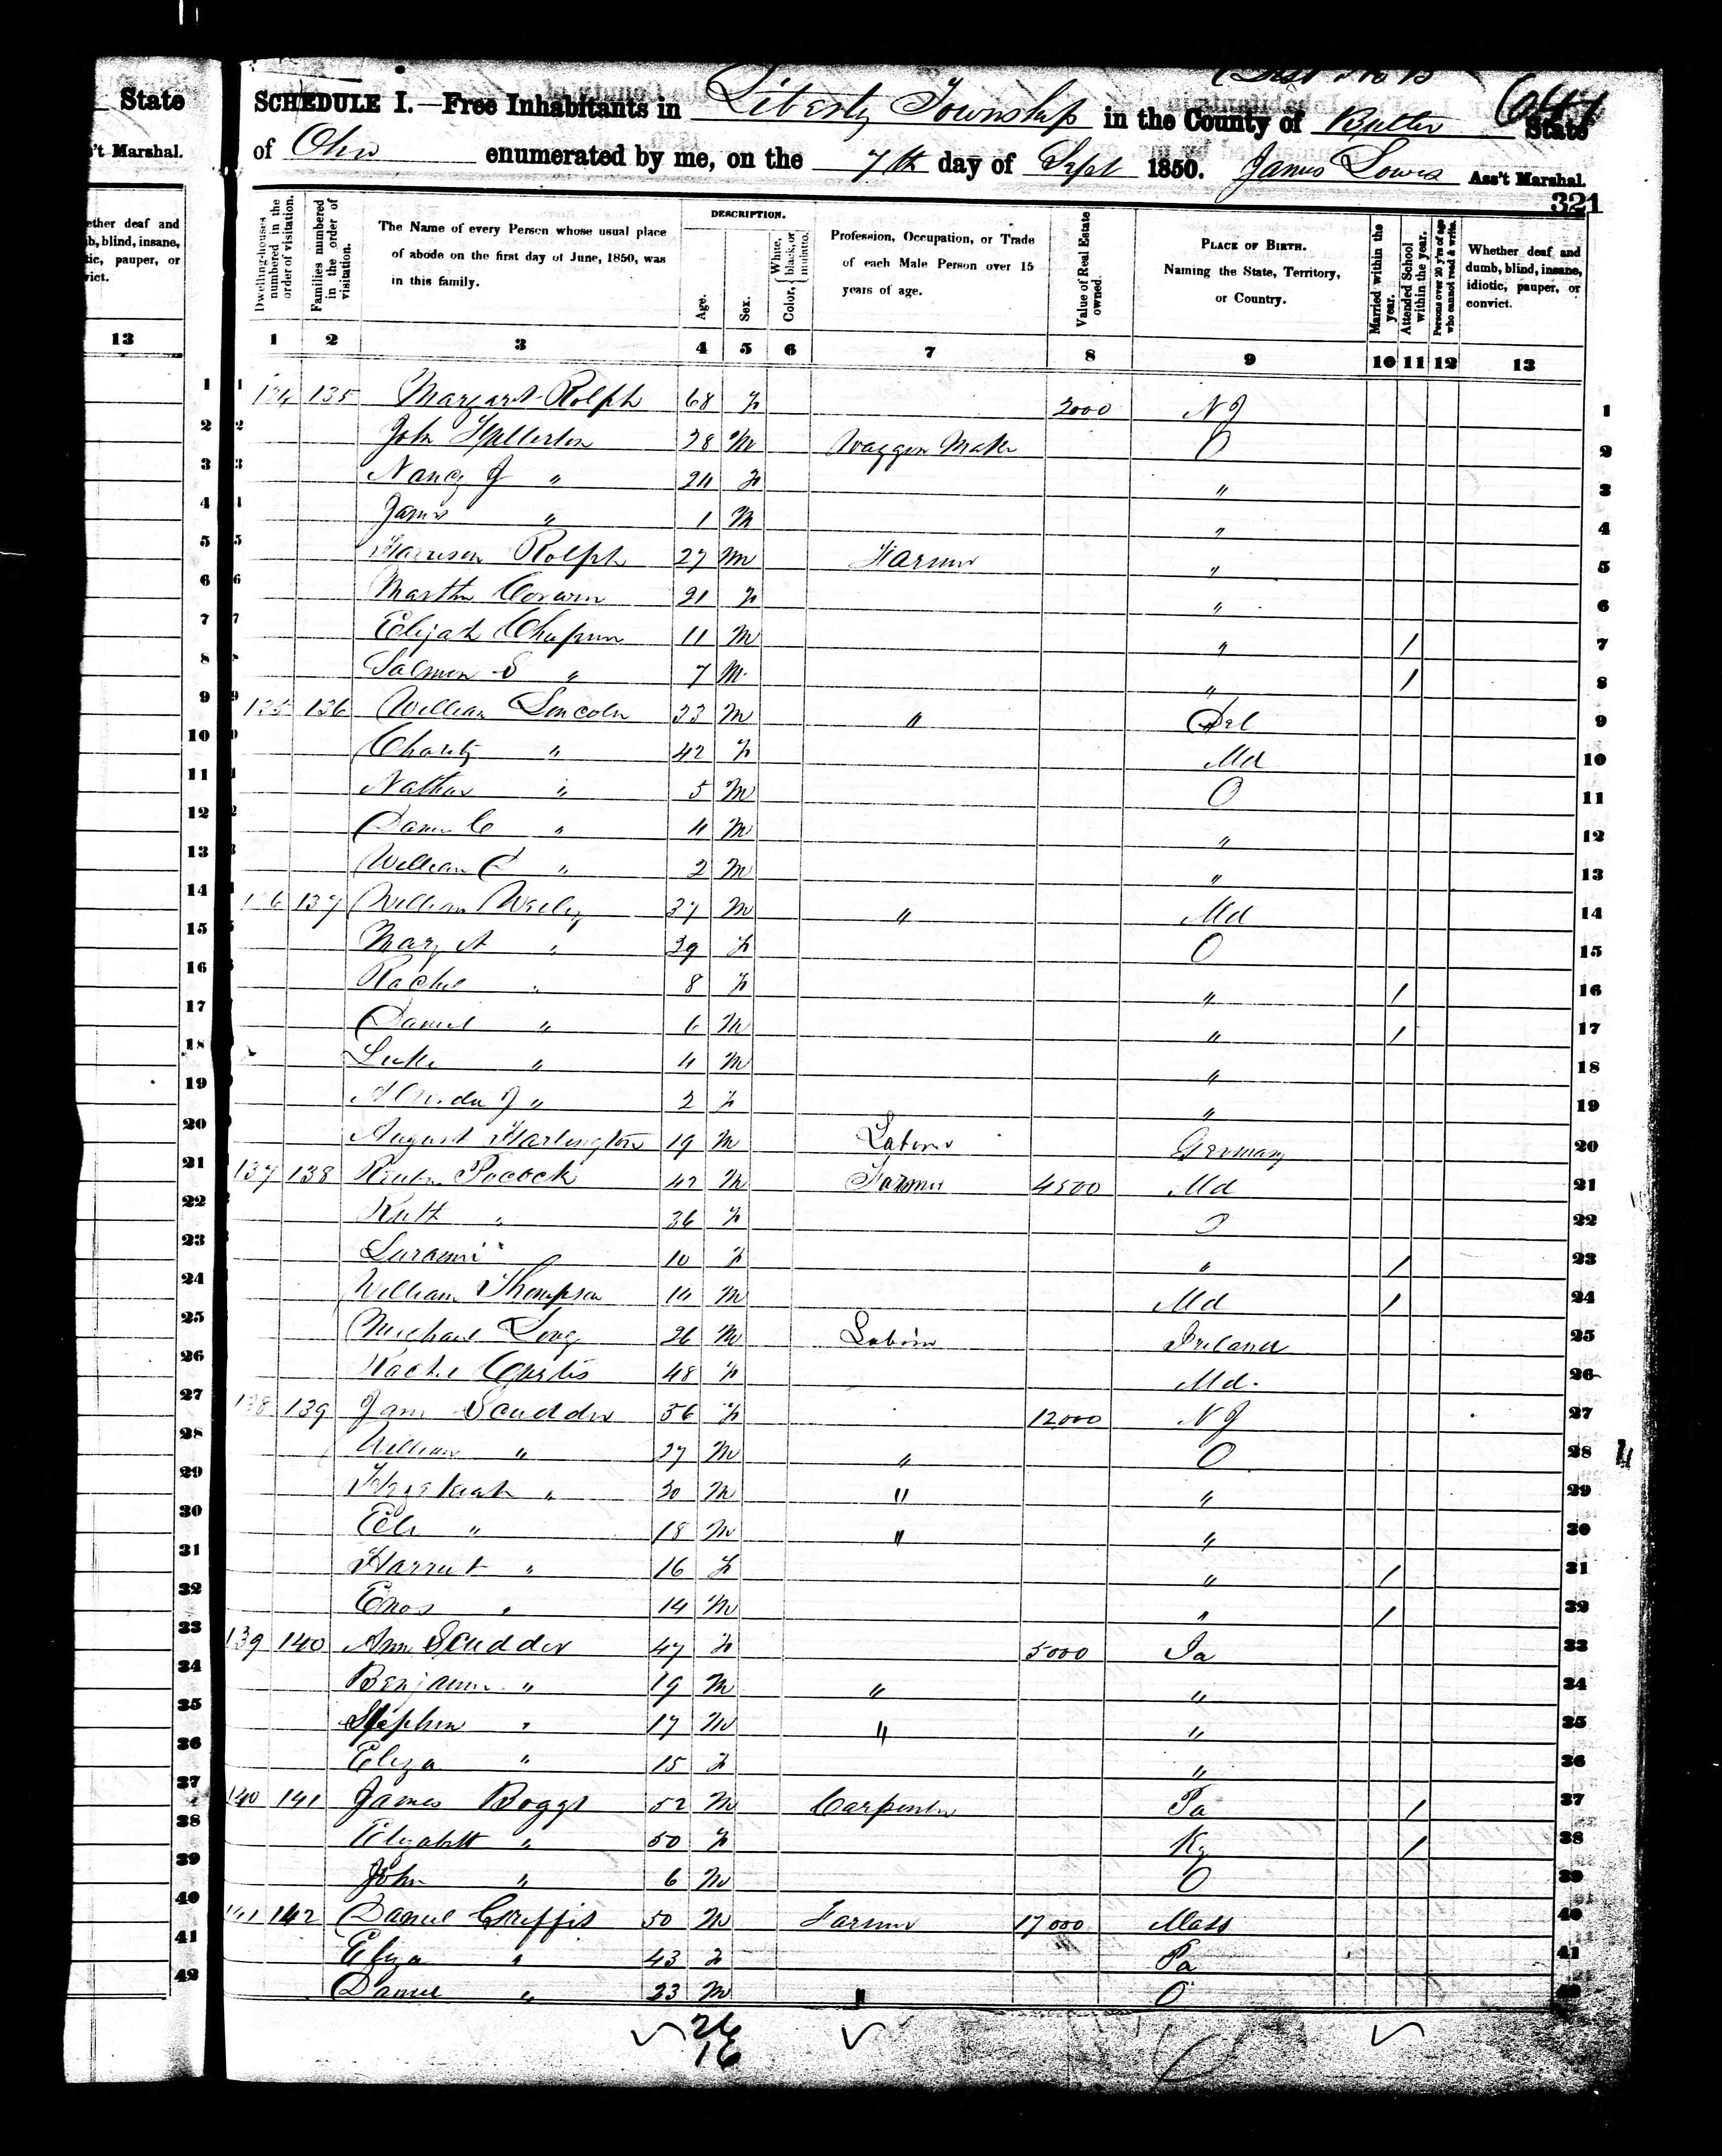 State
s't Marshal.
ether deaf and
b, blind, insane,
tic, pauper, or
vict.
13
641
SCHEDULE I.—Free Inhabitants in Liberty Township in the County of Butler State
of Ohio enumerated by me, on the 7th day of Sept 1850. James Lowes Ass't Marshal.
321
Dwelling-houses numbered in the order of visitation.
Families numbered in the order of visitation.
The Name of every Person whose usual place of abode on the first day of June, 1850, was in this family.
DESCRIPTION.
Age.
Sex.
Color, White, black, or mulatto.
Profession, Occupation, or Trade of each Male Person over 15 years of age.
Value of Real Estate owned.
PLACE OF BIRTH. Naming the State, Territory, or Country.
Married within the year.
Attended School within the year.
Persons over 20 y'rs of age who cannot read & write.
Whether deaf and dumb, blind, insane, idiotic, pauper, or convict.
1 2 3 4 5 6 7 8 9 10 11 12 13
1 134 135 Margaret Rolph 68 F 2000 N J 1
2 John 28 M Waggon Maker O 2
3 Nancy J " 24 F " 3
4 James " 1 M " 4
5 Harrison Rolph 27 M Farmer " 5
6 Martha Corwin 21 F " 6
7 Elijah 11 M " / 7
8 Salmon S " 7 M " / 8
9 135 136 William Lincoln 33 M " Del 9
10 Charity " 42 F Md 10
11 Nathan " 5 M O 11
12 " 4 M " 12
13 William " 2 M " 13
14 136 137 William 37 M " Md 14
15 Mary A " 39 F O 15
16 Rachel " 8 F " / 16
17 Daniel " 6 M " / 17
18 Luke " 4 M " 18
19 J " 2 F " 19
20 August 19 M Laborer Germany 20
21 137 138 Reuben Pocock 42 M Farmer 4500 Md 21
22 Ruth " 36 F 22
23 " 10 F " / 23
24 William Thompson 14 M Md / 24
25 Michael Long 26 M Laborer Ireland 25
26 Rachel Curtis 48 F Md. 26
27 138 139 Jane Scudder 56 F 12000 N J 27
28 William " 27 M " O 28
29 Hezekiah " 20 M " " 29
30 Eli " 18 M " " 30
31 Harriet " 16 F " / 31
32 Enos " 14 M " / 32
33 139 140 Ann Scudder 47 F 5000 Ia 33
34 Benjamin " 19 M " " 34
35 Stephen " 17 M " " 35
36 Eliza " 15 F " 36
37 140 141 James Boggs 52 M Carpenter Pa / 37
38 Elizabeth " 50 F Ky / 38
39 John " 6 M O 39
40 141 142 Daniel Griffis 50 M Farmer 17000 Mass 40
41 Eliza " 43 F Pa 41
42 Daniel " 23 M " O
26
16